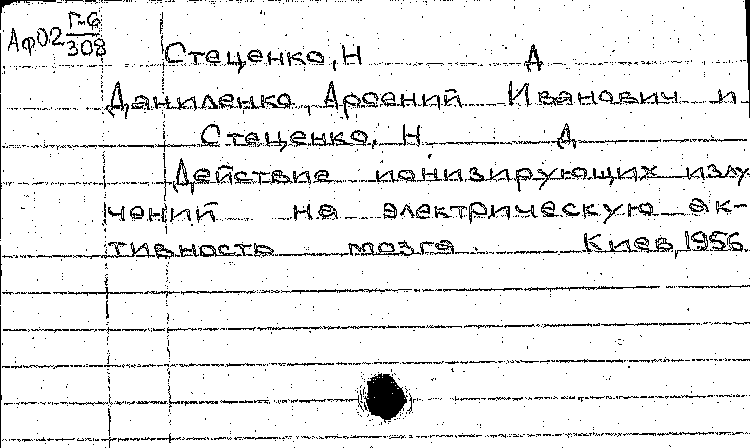 Аф02 Г-6/308
Стеценко, Н Д
Даниленко, Арсений Иванович и
Стеценко, Н. Д.
Действие ионизирующих излу
чений на электрическую ак-
тивность мозга. Киев, 1956